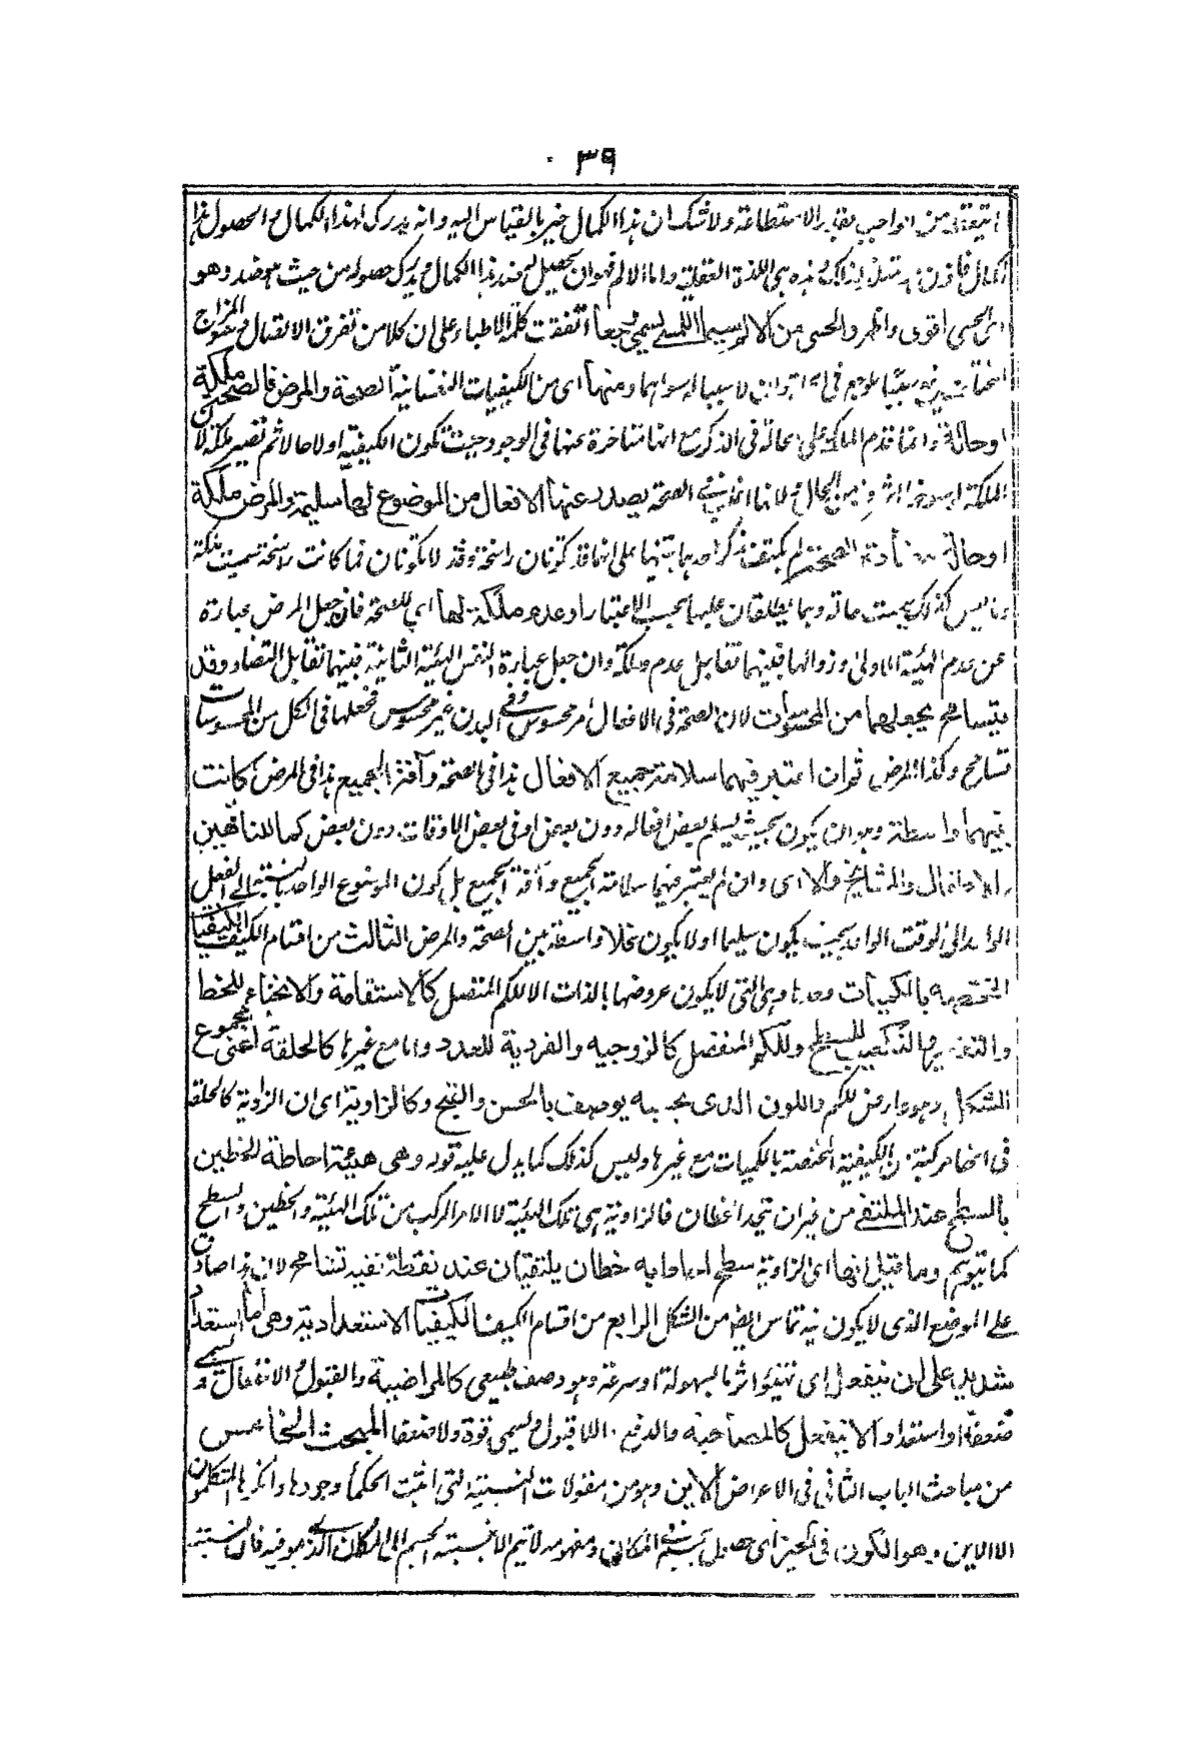 ٣٩
من الواجب بقدر الاستطاعة ولا شك ان هذا الكمال خير بالقياس اليه وانه يدرك لهذا الكمال والحصول هذا
الكمال فاذن هذه هى اللذة العقلية واما الالم فهو ان يحصل ضد هذا الكمال ويدرك حصوله من حيث هو ضد وهو
اى الحسى اقوى واظهر والحسى من الالم سيما اللمسى يسمى وجعا اتفقت كلمة الاطباء على ان كلا من تفرق الاتصال وسوء المزاج
المختلف سببا للوجع فى ومنها اى من الكيفيات النفسانية الصحة والمرض فالصحة ملكة
او حالة وانما قدم الملكة على الحالة فى الذكر مع انها متاخرة عنها فى الوجود حيث تكون الكيفية اولا حالا ثم تصير ملكة لان
الملكة من الحال الصحة يصدر عنها الافعال من الموضوع لها سليمة والمرض ملكة
او حالة الصحة لم يكتف بذكر احدهما تنبيها على انها قد تكونان راسخة وقد لا تكونان فما كانت راسخة سميت ملكة
وما ليس كذلك سميت حالة وربما يطلقان عليها بحسب الاعتبار او عدم ملكة لها اى للصحة فان جعل المرض عبارة
عن عدم الهيئة الاولى وزوالها فبينهما تقابل عدم وملكة وان جعل عبارة النفس الهيئة الثانية فبينهما تقابل التضاد وقد
يتسامح بجعلهما من المحسوسات لان الصحة فى الافعال امر محسوس وفى البدن غير محسوس فجعلها فى الكل من المحسوسات
تسامح وكذا المرض ثم ان اعتبر فيهما سلامة جميع الافعال هذا فى الصحة وآفة الجميع هذا فى المرض كانت
بينهما واسطة وهو ان يكون بحيث يسلم بعض افعاله دون بعض او فى بعض الاوقات دون بعض كما للناقهين
والاطفال والمشايخ والا اى وان لم يعتبر فيهما سلامة الجميع وآفة الجميع بل كون الموضوع الواحد بالنسبة الى الفعل
الواحد فى الوقت الواحد بحيث يكون سليما او لا يكون فلا واسطة بين الصحة والمرض الثالث من اقسام الكيف الكيفيات
المختصة بالكميات وهى التى لا يكون عروضها بالذات الا للكم المتصل كالاستقامة والانحناء للخط
والتقعير والتكعيب للسطح وللكم المنفصل كالزوجية والفردية للعدد واما مع غيرها كالخلقة اعنى مجموع
الشكل وهو عارض للكم واللون الذى بحسبه يوصف بالحسن والقبح وكالزاوية اى ان الزاوية كالخلقة
فى انها مركبة من الكيفية المختصة بالكميات مع غيرها وليس كذلك كما يدل عليه قوله وهى هيئة احاطة الخطين
بالسطح عند الملتقى من غير ان يتحدا خطان فالزاوية هى تلك الهيئة لا الامر المركب من تلك الهيئة والخطين والسطح
كما يتوهم وما قيل انها اى الزاوية سطح احاط به خطان يلتقيان عند نقطة ففيه تسامح لان هذا صادق
على الموضع الذى لا يكون فيه تماس الخط من الشكل الرابع من اقسام الكيف الكيفيات الاستعدادية وهى اما استعداد
شديد على ان ينفعل اى تهيؤ اثر ما بسهولة او سرعة وهو وصف طبيعى كالممراضية والقبول الانفعال ويسمى
ضعفا او استعداد الا ينفعل كالمصاحية والدفع اللا قبول ويسمى قوة ولا ضعفا المبحث الخامس
من مباحث الباب الثانى فى الاعراض الاين وهو من مقولات النسبية التى اثبت الحكماء وجودها وانكرها المتكلمون
الا الاين وهو الكون فى الحيز اى حصول الجسم فى المكان ومفهومه لا يتم الا بنسبة الجسم الى المكان الذى هو فيه فان نسبته